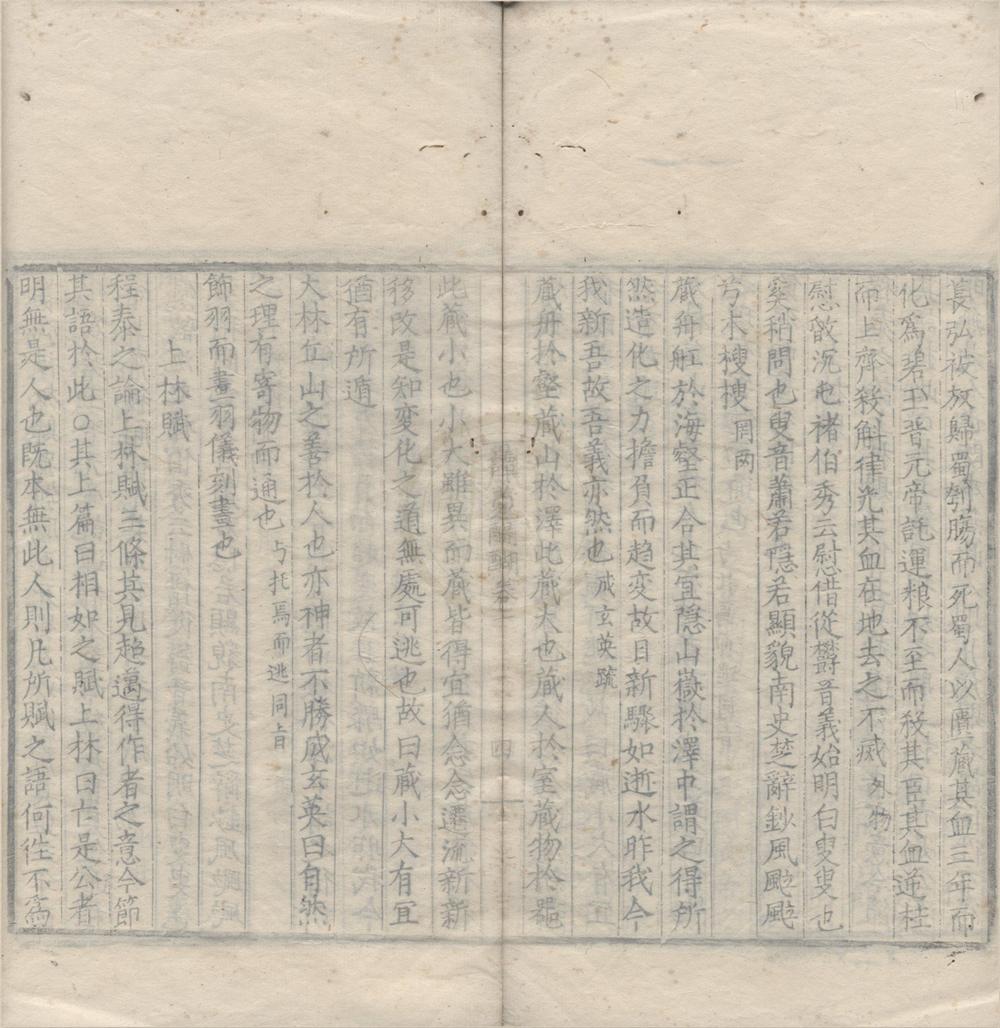 萇弘被放歸蜀刳膓而死蜀人以匱藏其血三年而
化爲碧玉晋元帝託運粮不至而殺其臣其血逆柱
而上齊殺斛律光其血在地去之不㓕 外物
慰暋沉屯褚伯秀云慰借從欝音義始明白叟叟也
奚稍問也叟音蕭若隱若顯貌南史楚辭鈔風颭颭
兮木梗梗 罔两
藏舟舡於海壑正合其宜隐山嶽於澤中謂之得所
然造化之力擔負而趍变故日新驟如逝水昨我今
我新吾故吾義亦然也 成玄英疏
藏舟於壑藏山於澤此藏大也藏人於室藏物於噐
此藏小也小大雖異而藏皆得宜猶念念遷流新新
移改是知变化之道無處可逃也故曰藏小大有宜
猶有所遁
大林丘山之善於人也亦神者不勝成玄英曰自然
之理有寄物而通也 与托焉而逃同旨
飾羽而畫羽儀刻畫也
上林賦
程泰之論上林賦三條其見超邁得作者之意今節
其語於此〇其上篇曰相如之賦上林曰亡是公者
明無是人也既本無此人則凡所賦之語何徃不爲
四